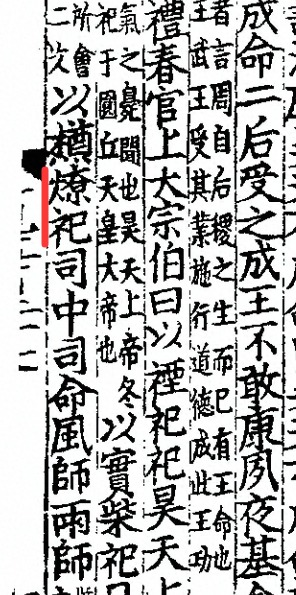 成命二后受之成王不敢康夙夜基
者言周自后稷之生而已有王命也
王武王受其業施行道德成此王功
禮春官上大宗伯曰以禋祀祀昊天上
氣之臭聞也昊天上帝冬
祀于圜丘天皇大帝也
以實柴祀
所會
二次
以槱燎祀司中司命風師雨師